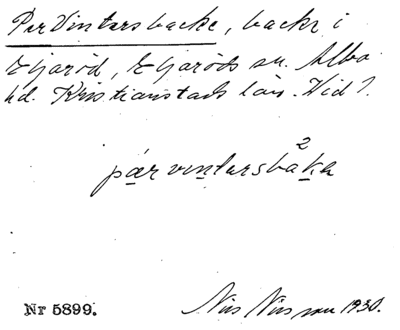 Per Vintersbacke, backe i
Eljaröd, Eljaröds sn. Albo
hd. Kristianstads län. Vid 7.
2
pær vintarsbaka
Nr 5899. Nils Nilsson 1930.